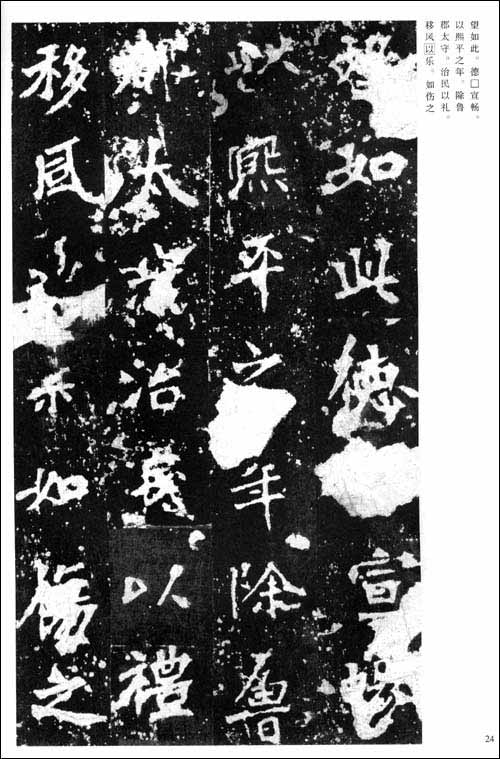 望如此。德□宣畅。
以熙平之年。除鲁
郡太守。治民以礼。
移风以乐。如伤之
望如此德宣暢
以熙平之年除魯
郡太守治民以禮
移風樂如傷之
24